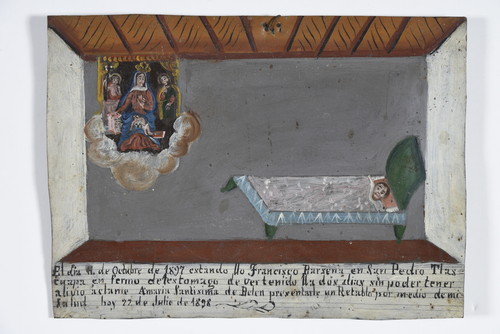 El dia 11 de Octubre de 1897 estando Yo Francisco Barsena en San Pedro Tlas=
cuapa en fermo del estomago de ver tenido Ya dos dias sin poder tener
alivio aclame Amaria Santisima de Belen presentarle un Retablo por medio de mi
Salud hoy 22 de Julio de 1898